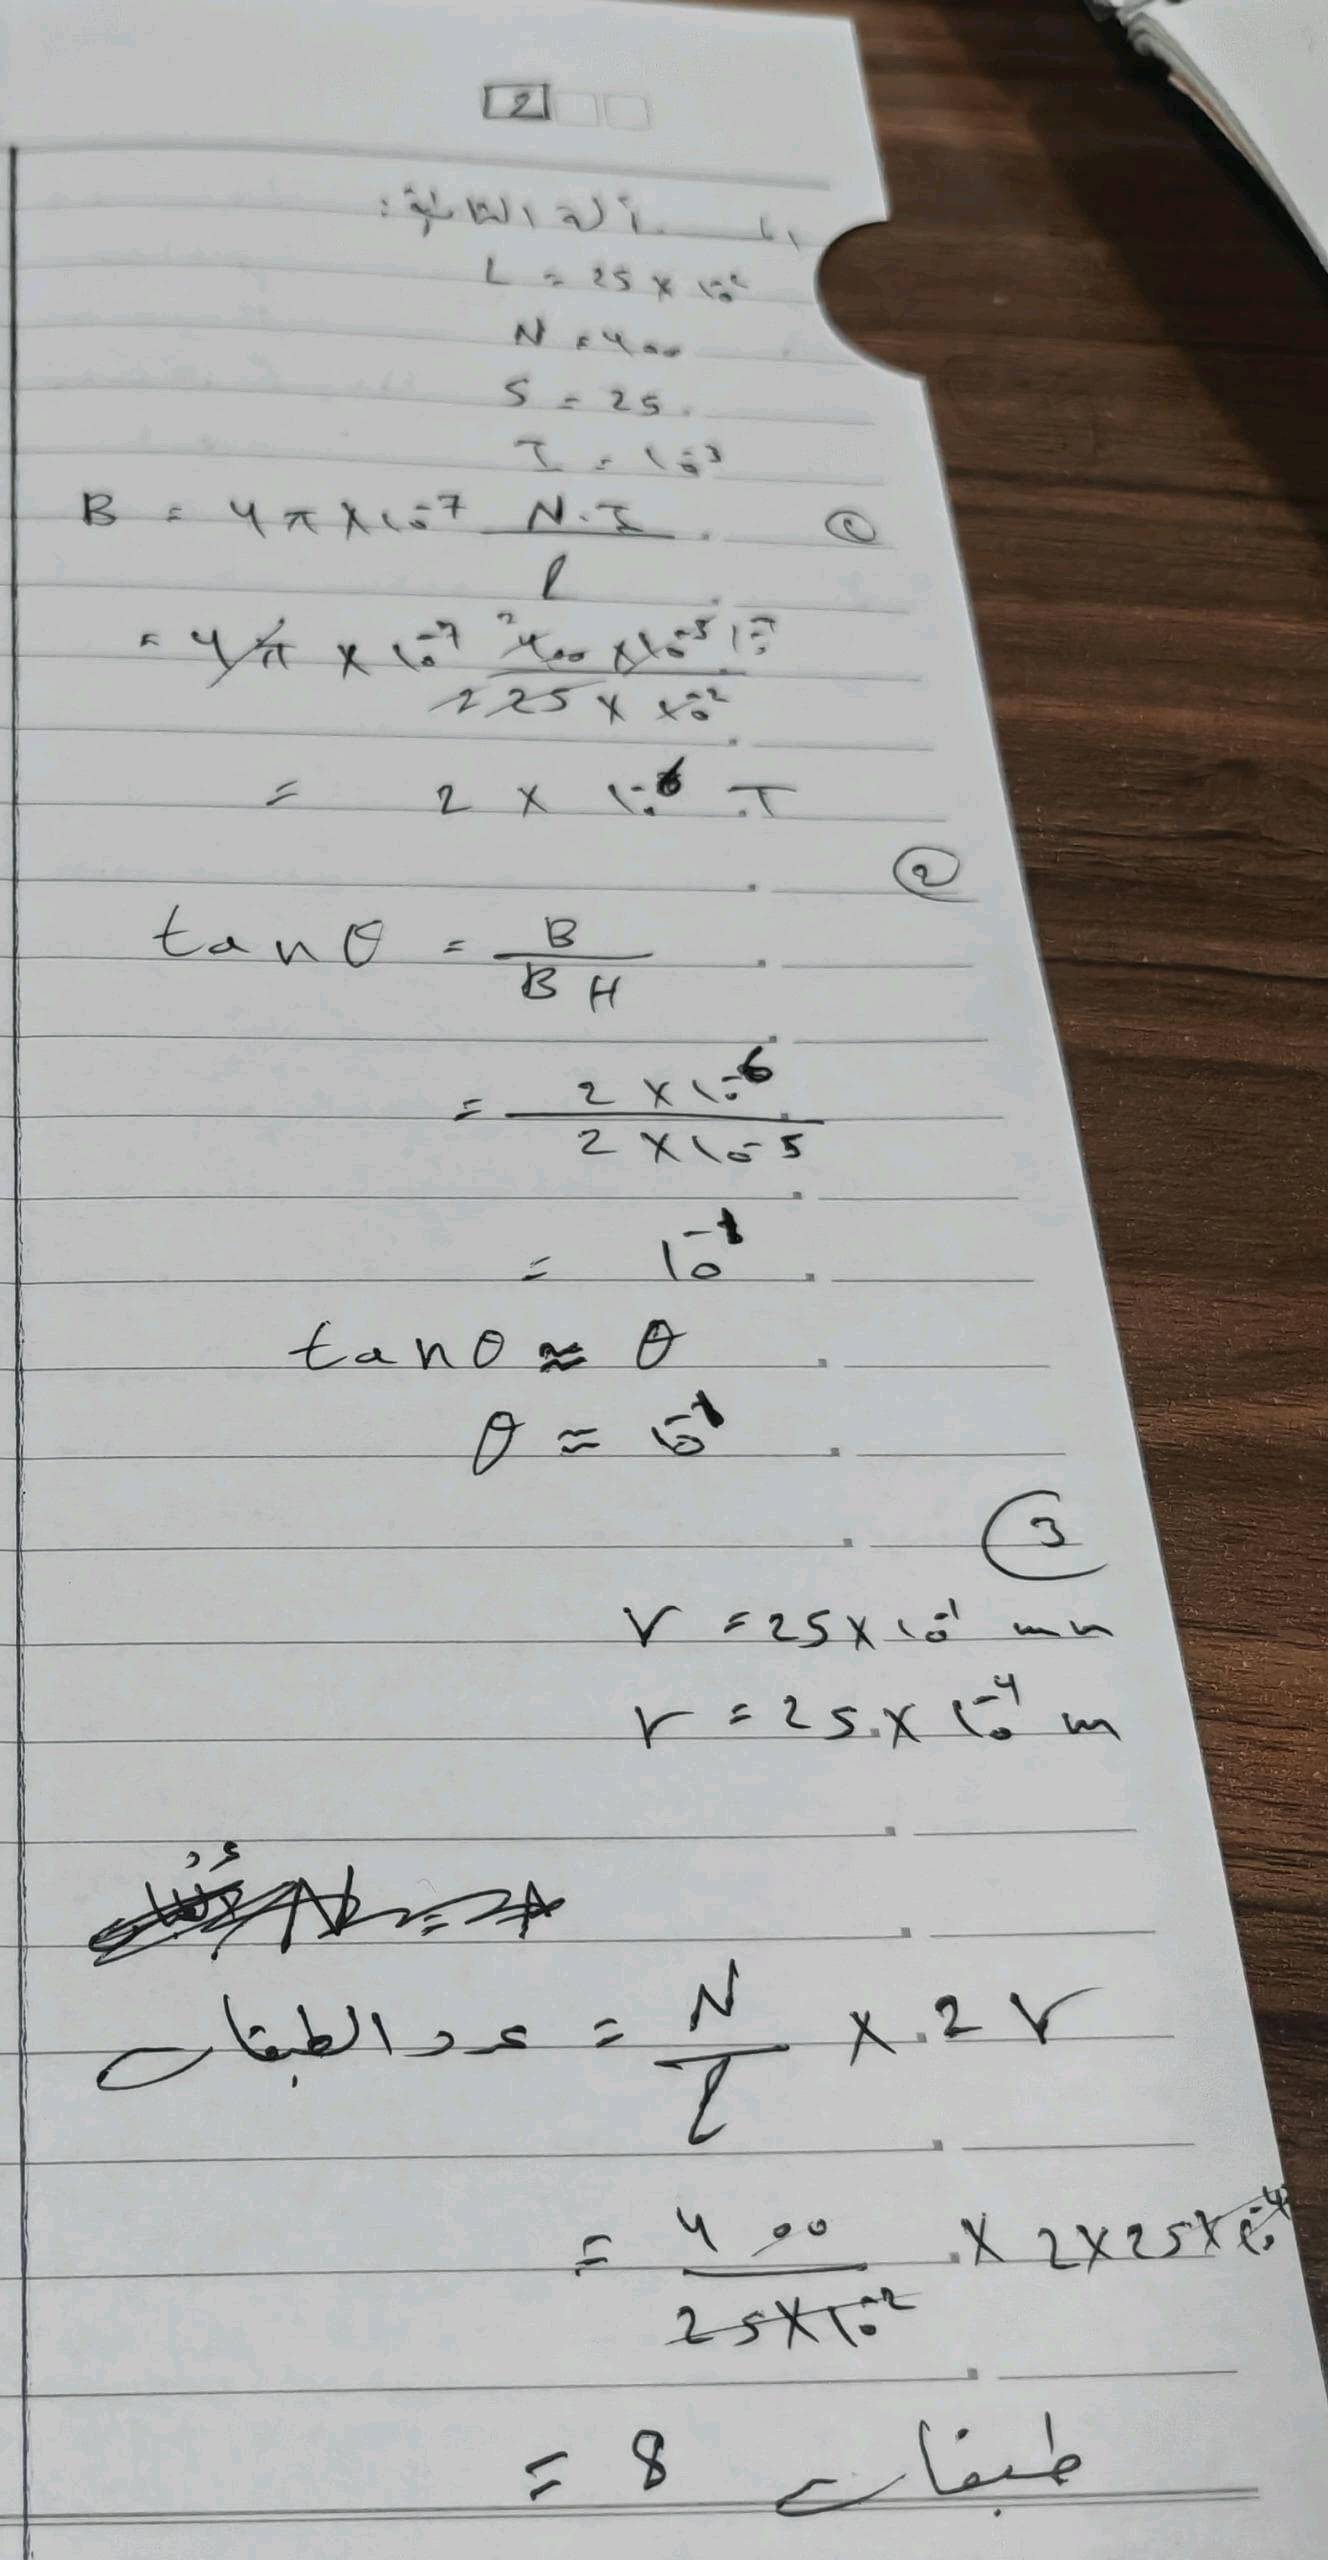 2
المسألة الثانية:
L = 25 × 10⁻²
N = 400
S = 25
I = 10⁻³
B = 4π × 10⁻⁷ N.I / l ①
= 4π × 10⁻⁷ 400 × 10⁻³ / 25 × 10⁻²
= 2 × 10⁻⁶ T
②
tan θ = B / BH
= 2 × 10⁻⁶ / 2 × 10⁻⁵
= 10⁻¹
tan θ ≈ θ
θ ≈ 10⁻¹
③
r = 25 × 10⁻¹ mm
r = 25 × 10⁻⁴ m
عدد الطبقات = N / l × 2 r
= 400 / 25 × 10⁻² × 2 × 25 × 10⁻⁴
= 8 طبقات